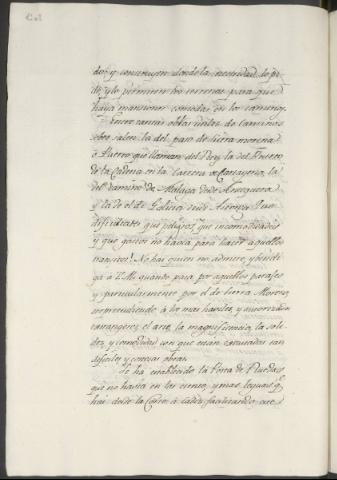 dos, y construyen donde la necesidad lo pi-
de, y lo permiten los terrenos para que
haya mansiones comodas en los caminos.
Entre tantas obras utiles de caminos
sobre salen la del paso de Sierra morena
ò Puerto que llaman del Rey, la del Puerto
de la Cadena en la Carrera de Cartagena, la
del camino de Malaga desde Antequera
y la de el de Galicia desde Astorga. Que
dificultades, que peligros, que incomodidades
y que gastos no havia para hacer aquellos
transitos! No hai quien no admire y bendi-
ga à V.M. quando pasa por aquellos parajes
y particularmente por el de Sierra Morena,
sorprendiendo à los mas habiles, y
extrangeros el arte, la magnificencia, la soli-
dez, y comodidad con que estan executadas tan
dificiles y costosas obras.
Se ha establecido la Posta de Ruedas
que no havia en las ciento, y mas leguas qe.
hai desde la Corte à Cadiz, facilitando este